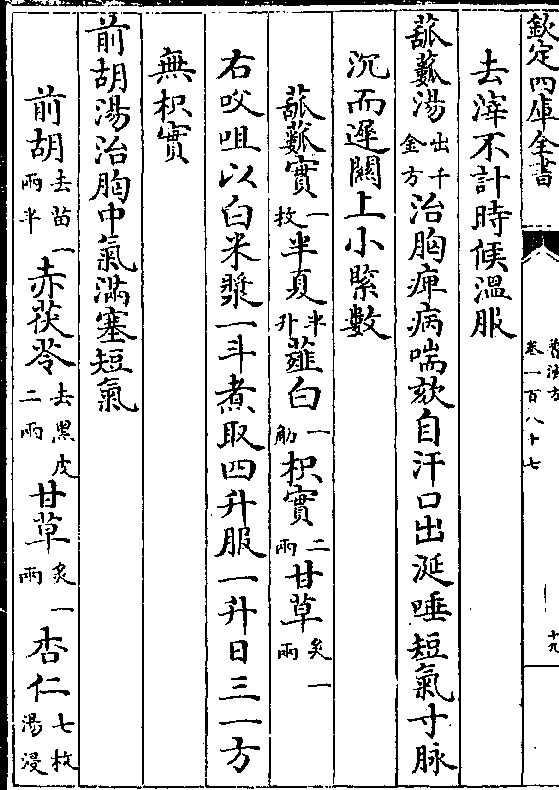 欽定四庫全書
普濟方
卷一百八十七
十九
去滓不計時候溫服
菰䕨湯出千金方治胸痺病喘欬自汗口出涎唾短氣寸脉
沉而遲關上小緊數
菰䕨實一枚半夏半升薤白一觔枳實二兩甘草炙一兩
右㕮咀以白米漿一斗煮取四升服一升日三一方
無枳實
前胡湯治胸中氣滿塞短氣
前胡去苗一兩半赤茯苓去黑皮二兩甘草炙一兩杏仁七枚湯浸